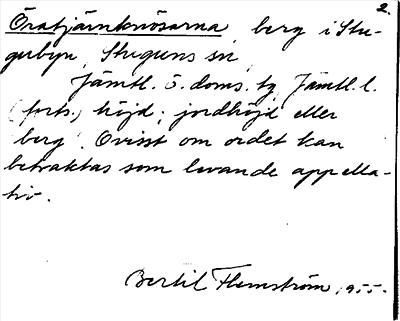 2.
Öratjärnknösarna berg i Stu-
gubyn, Stuguns sn,
Jämtl. ö. doms. tg Jämtl. l.
(forts.) höjd; jordhöjd eller
berg. Ovisst om ordet kan
betraktas som levande appella-
tiv.
Bertil Flemström 1955.